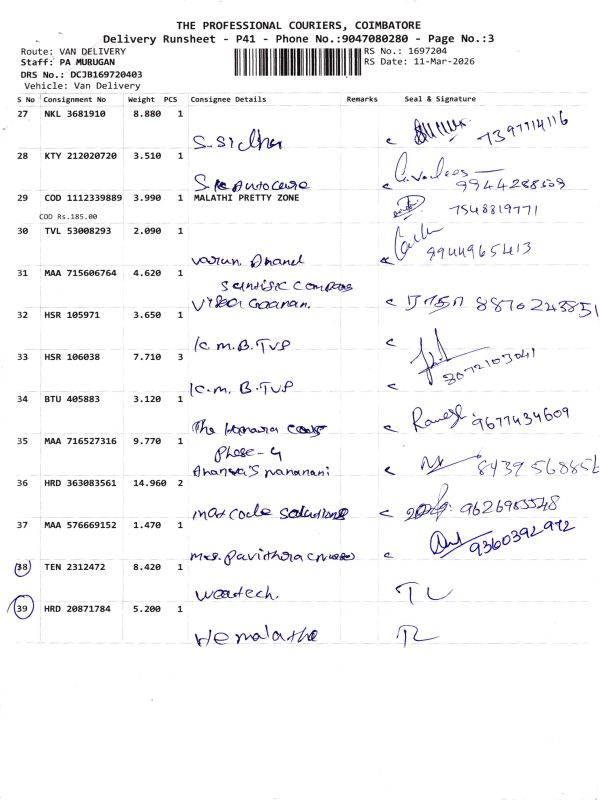 THE PROFESSIONAL COURIERS, COIMBATORE
Delivery Runsheet - P41 - Phone No.:9047080280 - Page No.:3
Route: VAN DELIVERY RS No.: 1697204
Staff: PA MURUGAN RS Date: 11-Mar-2026
DRS No.: DCJB169720403
Vehicle: Van Delivery
S No Consignment No Weight PCS Consignee Details Remarks Seal & Signature
27 NKL 3681910 8.880 1
S. Sridhar 7397714116
28 KTY 212020720 3.510 1
9944288509
29 COD 1112339889 3.990 1 MALATHI PRETTY ZONE
COD Rs.185.00 7548819771
30 TVL 53008293 2.090 1
Varun Anand 9944965413
31 MAA 715606764 4.620 1
8870243851
32 HSR 105971 3.650 1
K.M.B.TVS
33 HSR 106038 7.710 3
8072103041
K.M.B.TVS
34 BTU 405883 3.120 1
The Ramesh 9677434609
35 MAA 716527316 9.770 1
Phase-4
36 HRD 363083561 14.960 2
Solutions 9626985548
37 MAA 576669152 1.470 1
Mrs. Pavithra 9360392972
38 TEN 2312472 8.420 1
39 HRD 20871784 5.200 1
Hemalatha